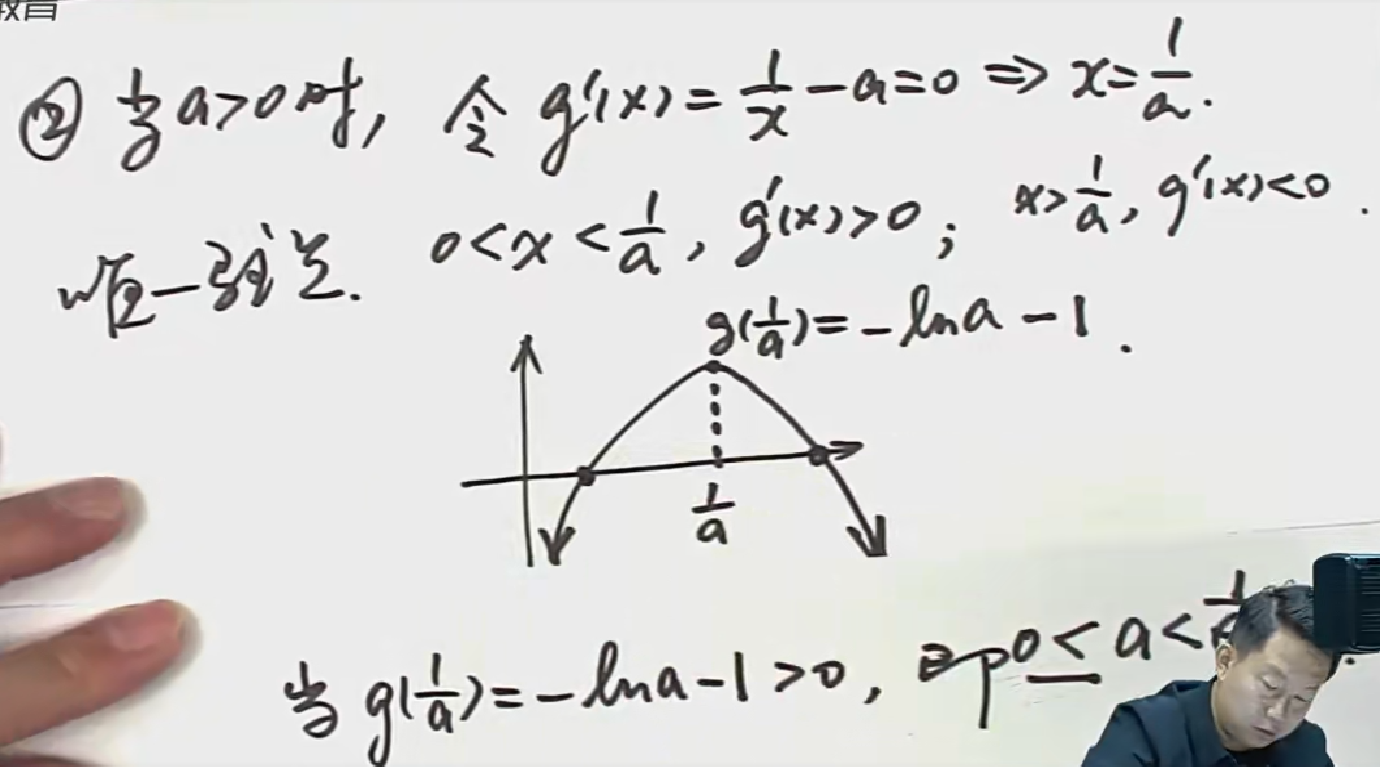 教育
② 当a>0时, 令 g'(x)=1/x-a=0 ⇒ x=1/a.
0<x<1/a, g'(x)>0; x>1/a, g'(x)<0.
g(1/a)=-lna-1.
1/a
当 g(1/a)=-lna-1>0, 即0<a<1/